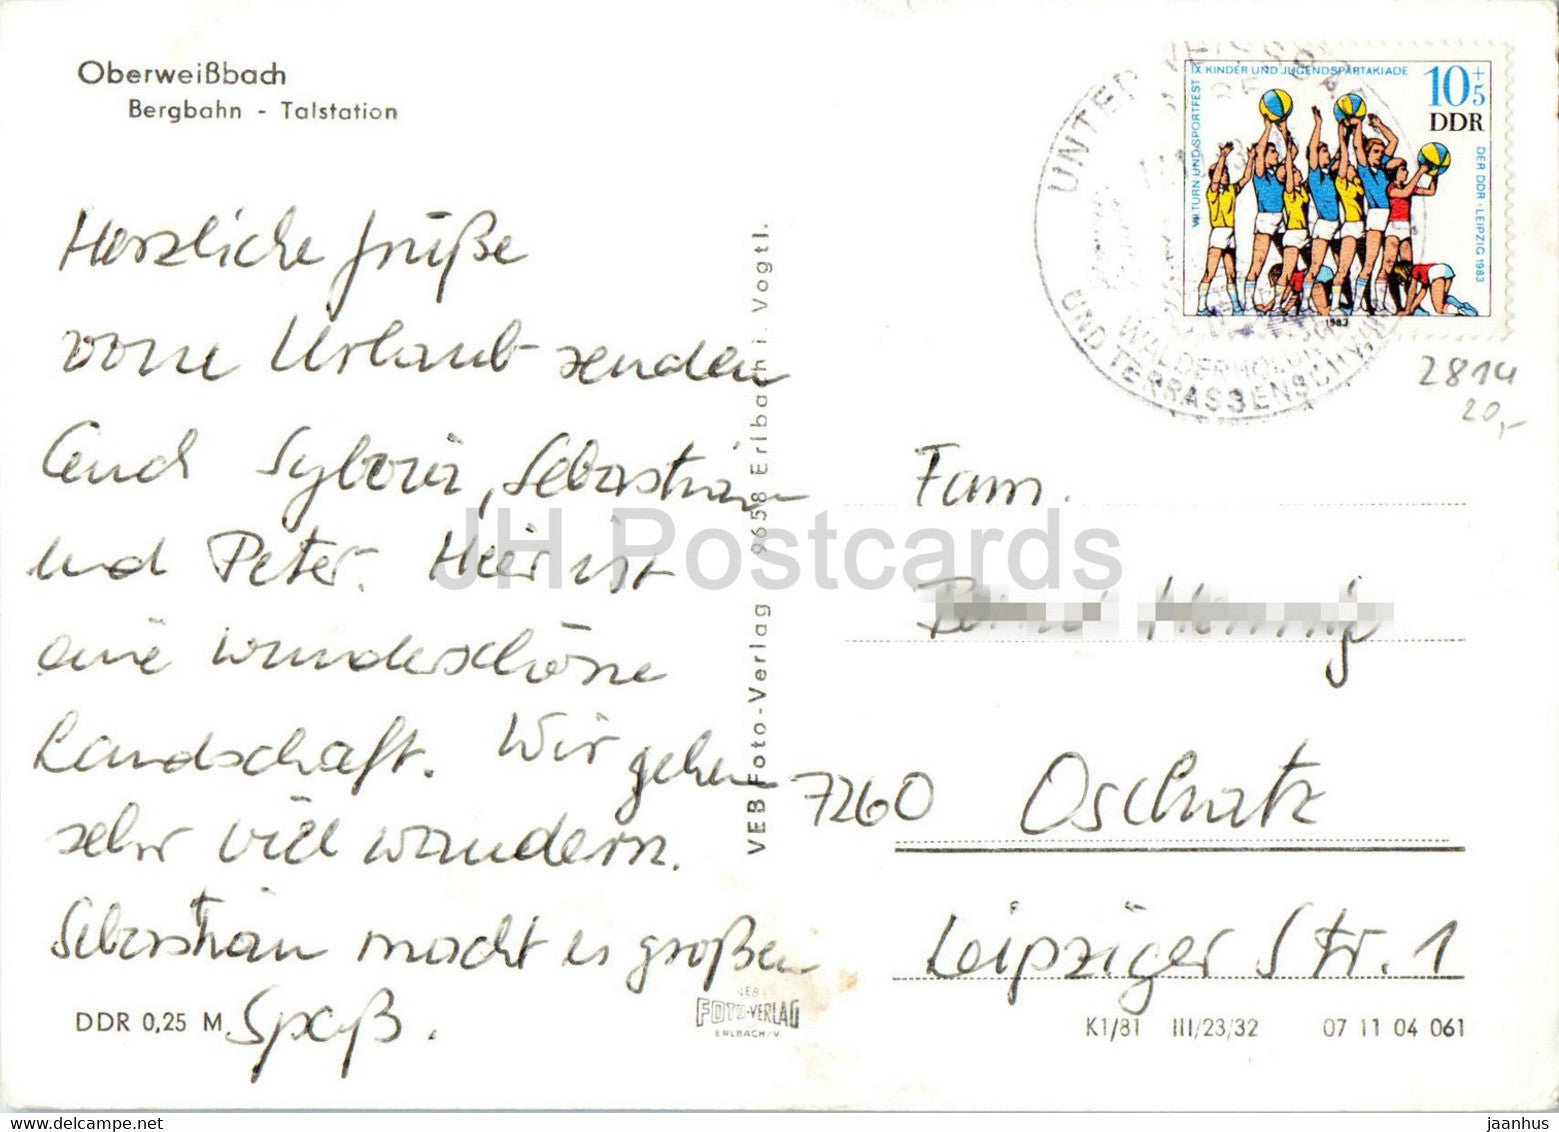 Oberweißbach
Bergbahn - Talstation
Herzliche Grüße
vom Urlaub senden
Euch Sylvia, Sebastian
und Peter. Hier ist
eine wunderschöne
Landschaft. Wir gehen
sehr viel wandern.
Sebastian macht es großen
Spaß.
DDR 0,25 M
VEB Foto-Verlag 9658 Erlbach i. Vogtl.
VEB
FOTO-VERLAG
ERLBACH/V.
IX KINDER UND JUGENDSPARTAKIADE
VII. TURN UND SPORTFEST
DER DDR · LEIPZIG 1983
10+5
DDR
1983
UNTER
UND TERRASSENSCHWIMM
2814
20,-
Fam.
7260 Oschatz
Leipziger Str. 1
K1/81 III/23/32 07 11 04 061
JH Postcards
jaanhus